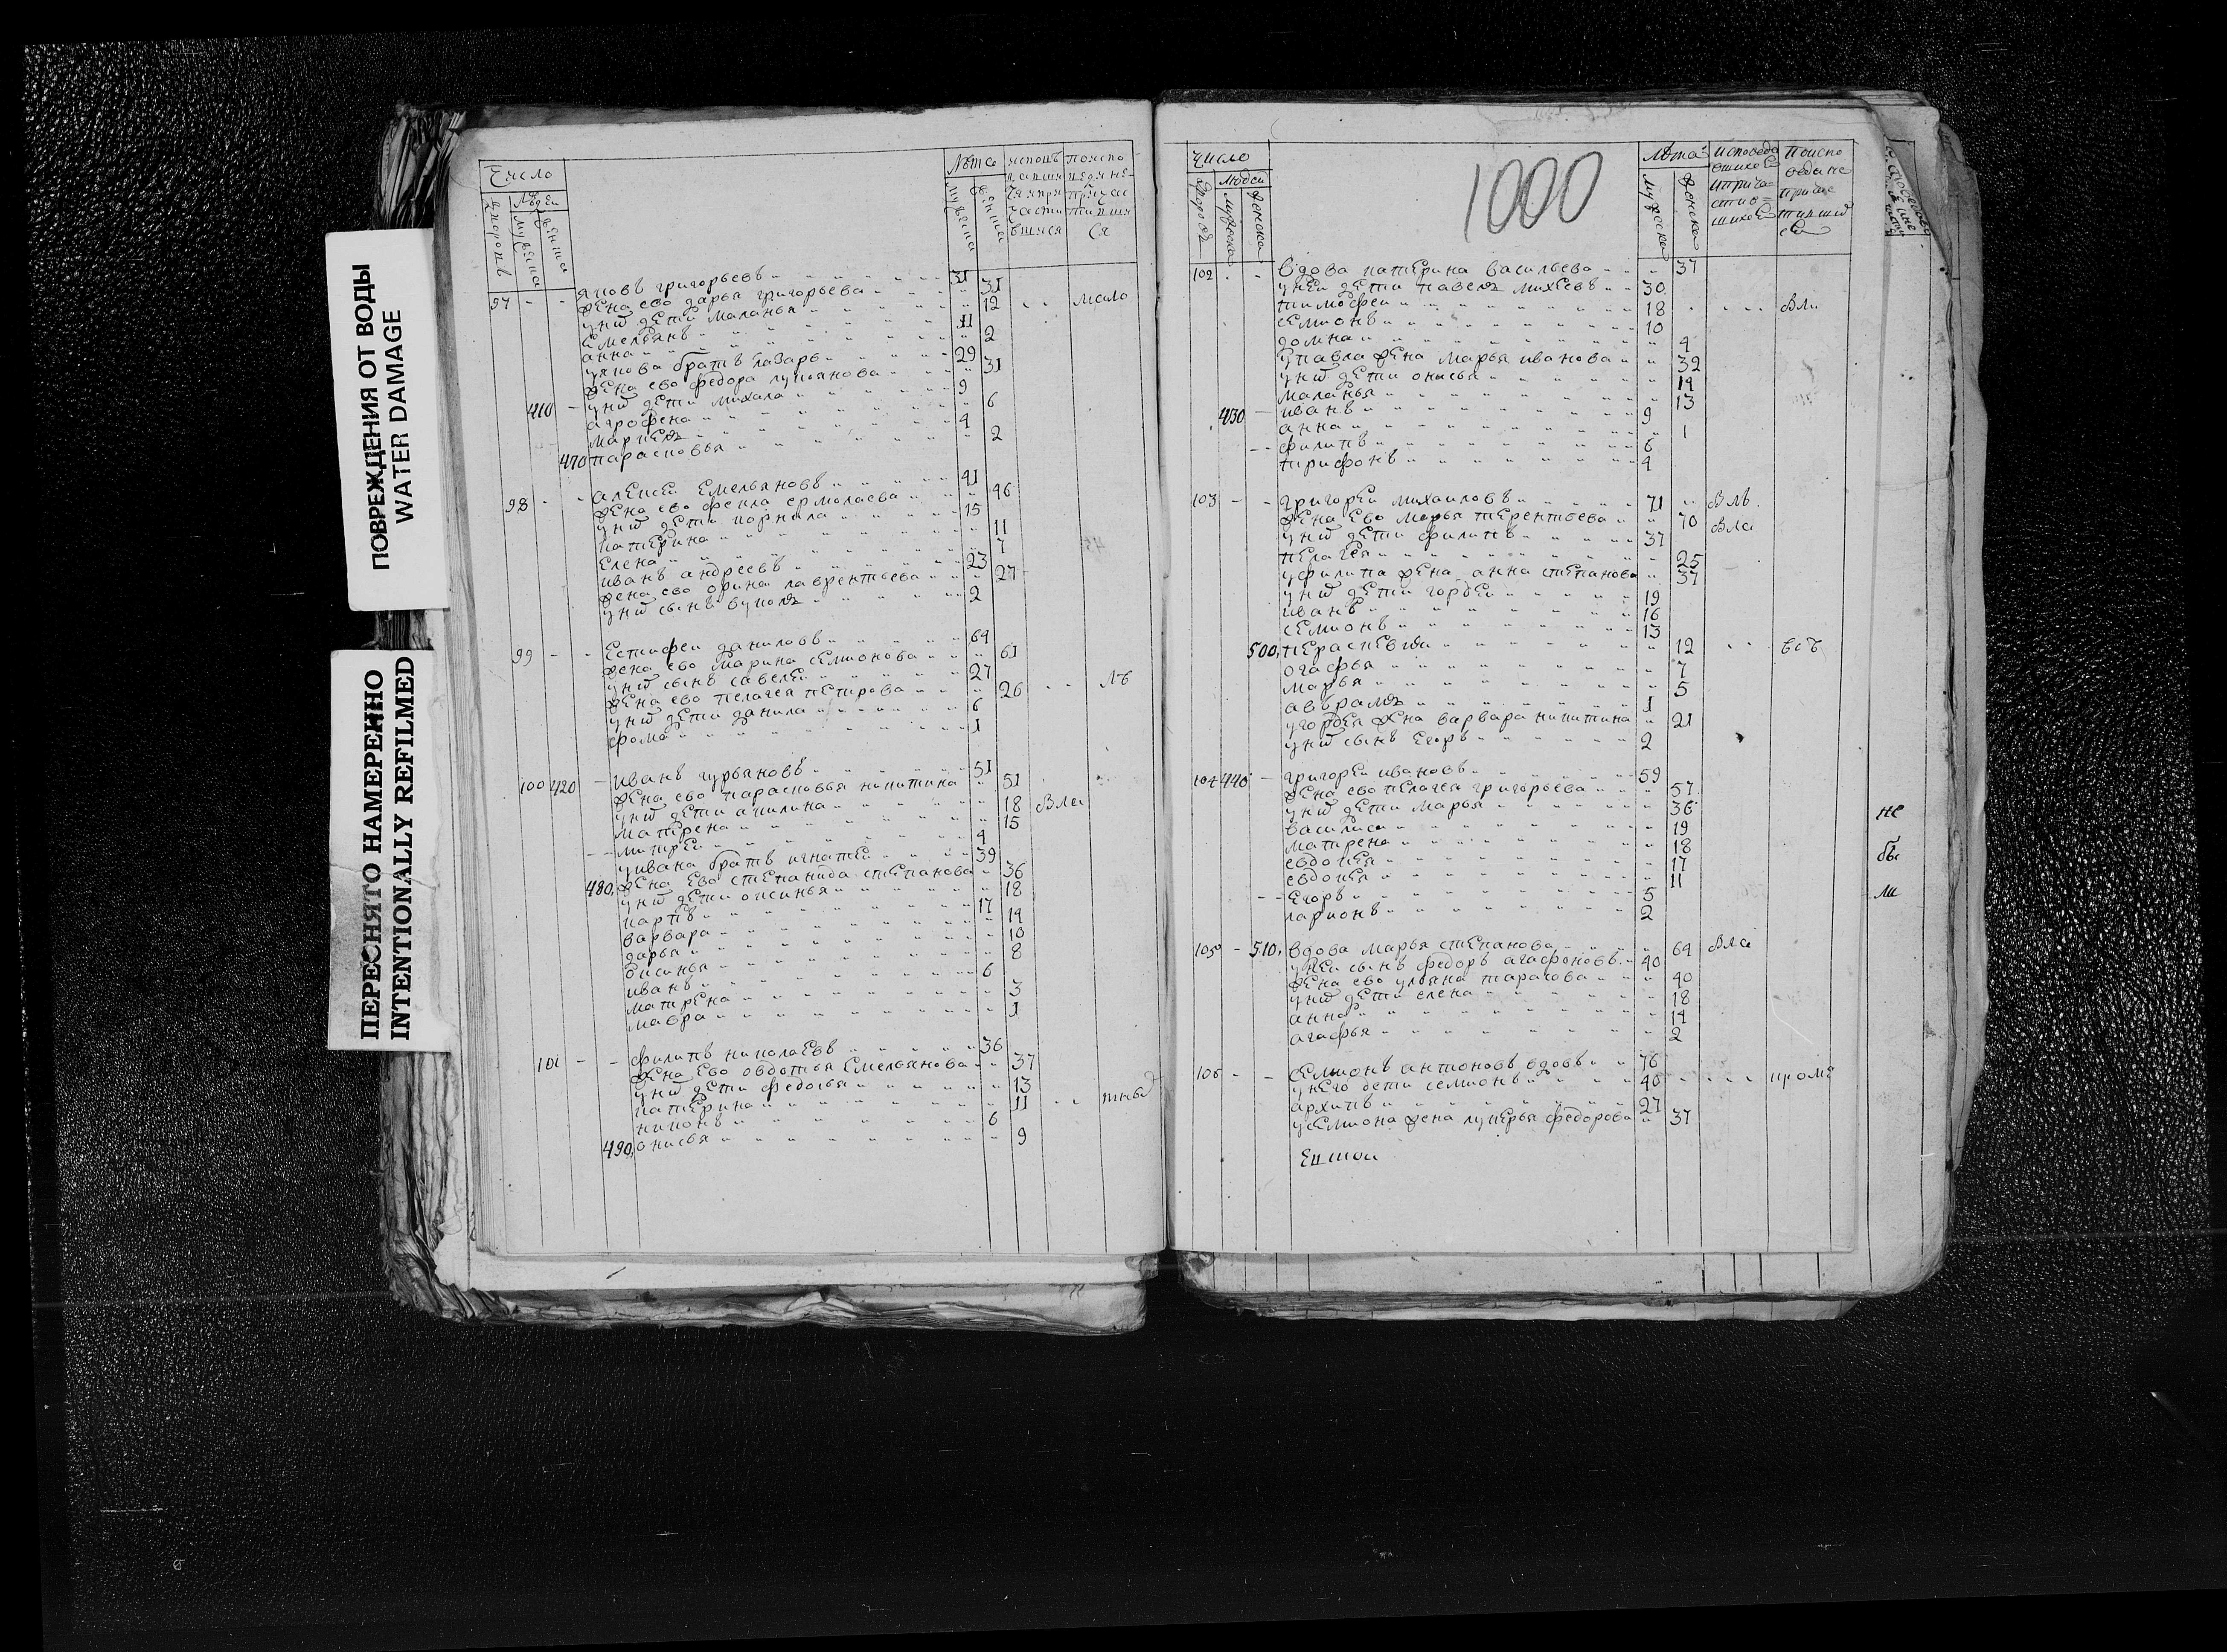 ПОВРЕЖДЕНИЯ ОТ ВОДЫ
WATER DAMAGE
ПЕРЕСНЯТО НАМЕРЕННО
INTENTIONALLY REFILMED
Число
Лѣта
97 яковъ григорьевъ 31
жена ево дарья григорьева 31
у нихъ дети маланья 12 мало
Емельянъ 11
анна 2
у якова братъ лазарь 29
жена ево федора лукоянова 31
410 у нихъ дети михала 9
агрофена 6
маркелъ 4
470 парасковья 2
98 алексеи Емельяновъ 41
жена ево фекла ермолаева 46
у нихъ дети корнила 15
катерина 11
Елена 7
иванъ андреевъ 23
жена ево орина лаврентьева 27
у нихъ сынъ вуколъ 2
99 Естифеи даниловъ 64
жена ево марина семионова 61
у нихъ сынъ савелеи 27
жена ево пелагея петрова 26 лѣ
у нихъ дети данила 6
фома 1
100 420 иванъ гурьяновъ 51
жена ево парасковья никитина 51
у нихъ дети акилина 18
матрена 15
митреи 4
у ивана братъ игнатеи 39
480 жена Ево степанида степанова 36
у нихъ дети оксинья 18
карпъ 17
варвара 14
дарья 10
оксинья 8
иванъ 6
матрена 3
мавра 1
101 филипъ николаевъ 36
жена Ево овдотья Емельянова 37
у нихъ дети федосья 13
катерина 11
никонъ 6
490 онисья 9
1000
Число
людеи
Лѣта
102 вдова катерина васильева 37
у неи дети павелъ михеевъ 30
тимофеи 18
семионъ 10
домна 4
у павла жена марья иванова 32
у нихъ дети онисья 14
маланья 13
430 иванъ 9
анна 1
филипъ 6
трифонъ 4
103 григореи михаиловъ 71
жена Ево марья терентьева 70
у нихъ дети филипъ 37
пелагея 25
у филипа жена анна степанова 37
у нихъ дети гордеи 19
иванъ 16
семионъ 13
500 12
огафья 7
марья 5
авврамъ 1
у гордея жена варвара никитина 21
у нихъ сынъ Егоръ 2
104 440 григореи ивановъ 59
жена ево пелагея григорьева 57
у нихъ дети марья 36
василиса 19
матрена 18
евдокея 17
евдокея 11
Егоръ 5
ларионъ 2
105 510 вдова марья степанова 64
у неи сынъ федоръ агафоновъ 40
жена ево ульяна тарасова 40
у нихъ дети елена 18
анна 14
агафья 2
106 семионъ антоновъ вдовъ 76
у него дети семионъ 40 кроме
архипъ 27
у семиона жена лукерья федорова 37
не
бы
ли